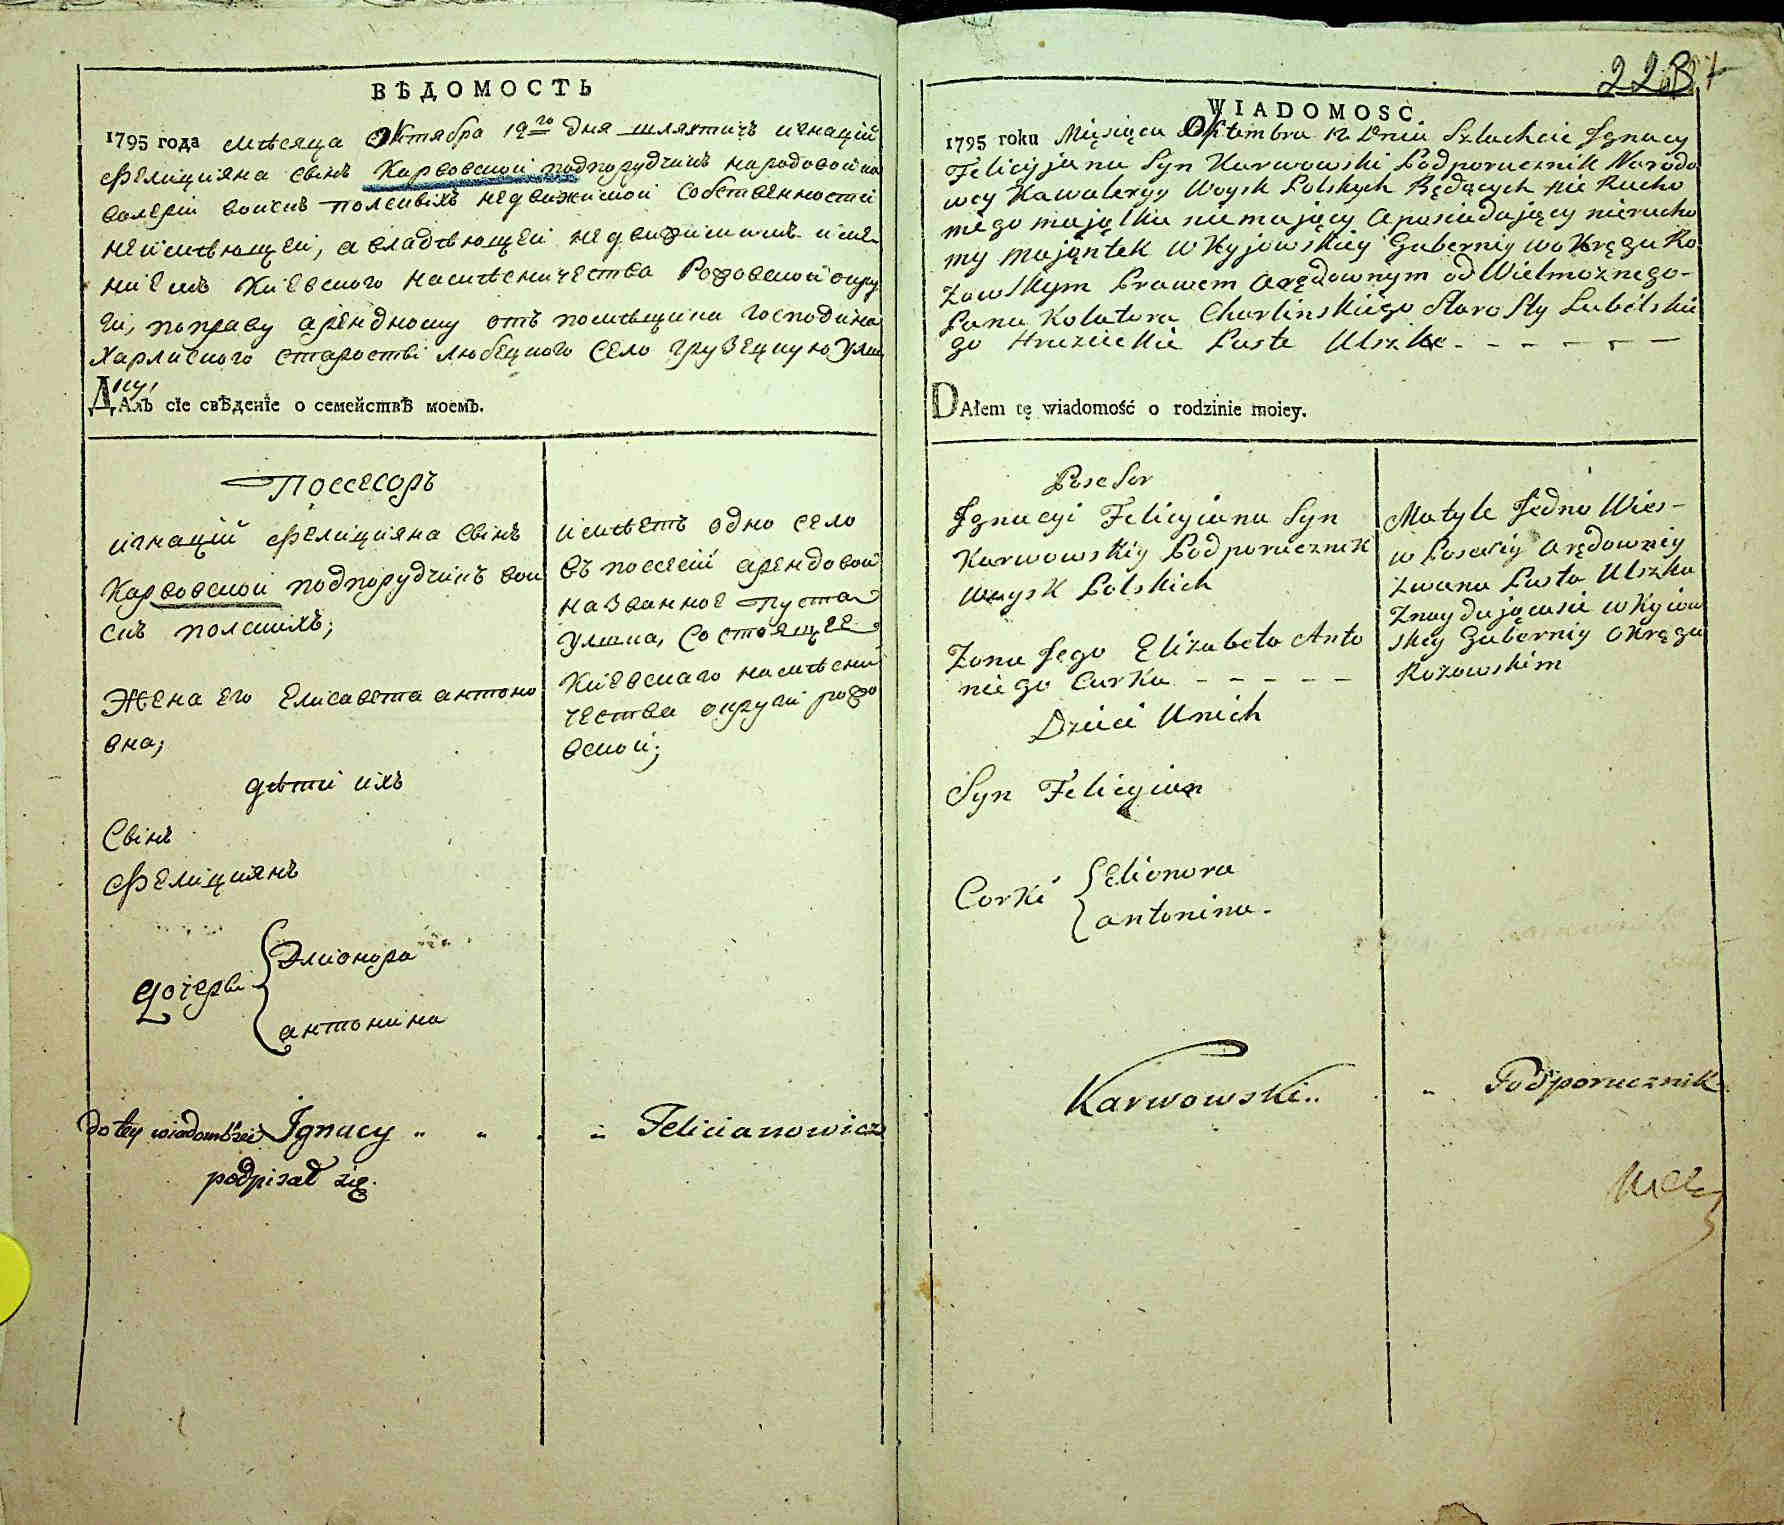 ВѢДОМОСТЬ
1795 года мѣсяца Октября 12го дня шляхтичъ игнацій
Фелиціяна свінъ Карвовской подпорудчикъ народовой ка
валеріи воискъ полскихъ недвижимой собственности
неимѣющей, а владѣющей недвижимимъ име
ніемъ Кіевского намѣсничества Рожовской окру
ги, поправу арендному отъ помѣщика Господина
Харлиского старости любецкого село грузецкую Ули
ку,
Далъ сіе свѣденіе о семействѣ моемъ.
Поссесоръ
игнацій Фелиціяна свінъ
Карвовской подпорудчикъ вои
скъ полскихъ;
Жена его Елисавета антоно
вна;
дѣти ихъ
Свінъ
Фелициянъ
дочерви
Элионора
антонина
имѣетъ одно село
въ поссесіи арендовой
названное Пустая
Улшка, состоящее
Кіевскаго намѣсни
чества округи рожо
вской;
do tey wiadomości Ignacy " " " " Felicianowicz
podpisał się.
223
WIADOMOSC
1795 roku Miesiąca Oktembra 12 Dnia Szlachcic Ignacy
Felicyjana Syn Karwowski Podporucznik Narodo
wey Kawaleryy Woysk Polskych Będących nie Rucho
mego mająlku niemający Aposiadający nierucho
my mająntek w Kyjowskiey Guberniy wokręgu Ro
żowskym Prawem Arędownym od Wielmożnego-
Pana Kolatora Charlinskiego Starosty Lubelskie
go Hruzieckie Puste Ulszke - - - - - -
DAłem tę wiadomość o rodzinie moiey.
Posesor
Ignacyi Felicyiana Syn
Karwowskiy Podporucznik
Woysk Polskich
Zona Jego Elizabeta Anto
niego Curka - - - - -
Dzieci Unich
Syn Felicyian
Corki
Elionora
antonina.
Matyle Jedno Wies-
w Posesiy Arędowniy
zwana Pusta Ulszka
Znaydująeasie w Kyiow
skiey Guberniy Okręgu
Rożowskim
Karwowski.. " Podporucznik